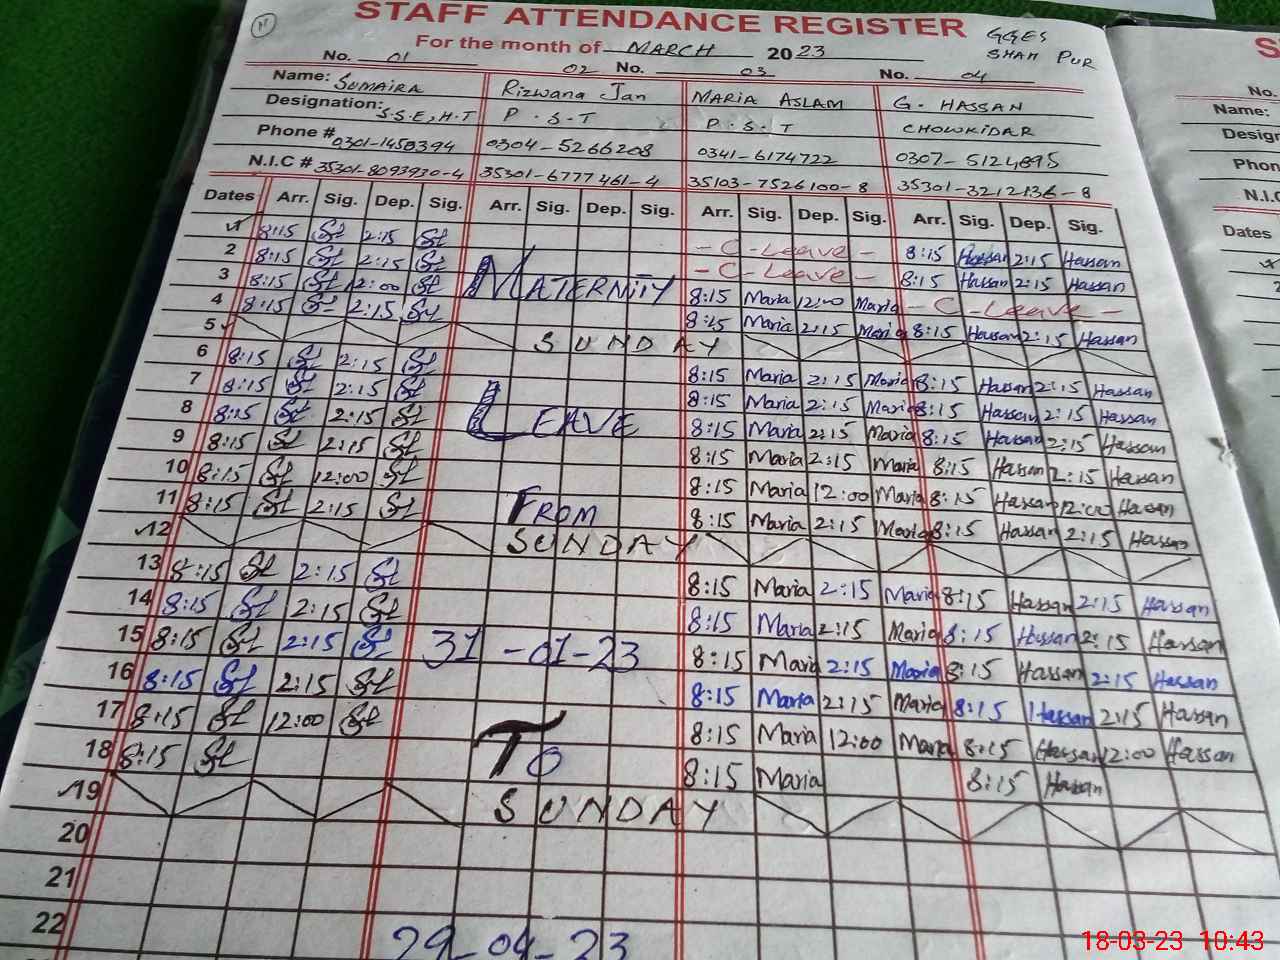 STAFF ATTENDANCE REGISTER
For the month of MARCH 2023
GGES SHAH PUR
No. 01 02 No. 03 No. 04
Name: SUMAIRA Rizwana Jan MARIA ASLAM G. HASSAN
Designation: S.S.E, H.T P.S.T P.S.T CHOWKIDAR
Phone # 0301-1450394 0304-5266208 0341-6174722 0307-5124895
N.I.C # 35301-8093930-4 35301-6777461-4 35103-7526100-8 35301-3212136-8
Dates Arr. Sig. Dep. Sig. Arr. Sig. Dep. Sig. Arr. Sig. Dep. Sig. Arr. Sig. Dep. Sig.
1 8:15 2:15 - C - Leave - 8:15 Hassan 2:15 Hassan
2 8:15 2:15 - C - Leave - 8:15 Hassan 2:15 Hassan
3 8:15 12:00 MATERNITY 8:15 Maria 12:00 Maria - C - Leave -
4 8:15 2:15 8:15 Maria 2:15 Maria 8:15 Hassan 2:15 Hassan
5 SUNDAY
6 8:15 2:15 8:15 Maria 2:15 Maria 8:15 Hassan 2:15 Hassan
7 8:15 2:15 8:15 Maria 2:15 Maria 8:15 Hassan 2:15 Hassan
8 8:15 2:15 LEAVE 8:15 Maria 2:15 Maria 8:15 Hassan 2:15 Hassan
9 8:15 2:15 8:15 Maria 2:15 Maria 8:15 Hassan 2:15 Hassan
10 8:15 12:00 8:15 Maria 12:00 Maria 8:15 Hassan 12:00 Hassan
11 8:15 2:15 FROM 8:15 Maria 2:15 Maria 8:15 Hassan 2:15 Hassan
12 SUNDAY
13 8:15 2:15 8:15 Maria 2:15 Maria 8:15 Hassan 2:15 Hassan
14 8:15 2:15 8:15 Maria 2:15 Maria 8:15 Hassan 2:15 Hassan
15 8:15 2:15 31-01-23 8:15 Maria 2:15 Maria 8:15 Hassan 2:15 Hassan
16 8:15 2:15 8:15 Maria 2:15 Maria 8:15 Hassan 2:15 Hassan
17 8:15 12:00 8:15 Maria 12:00 Maria 8:15 Hassan 12:00 Hassan
18 8:15 TO 8:15 Maria 8:15 Hassan
19 SUNDAY
20
21
22
29-04-23
No.
Name:
Dates
18-03-23 10:43